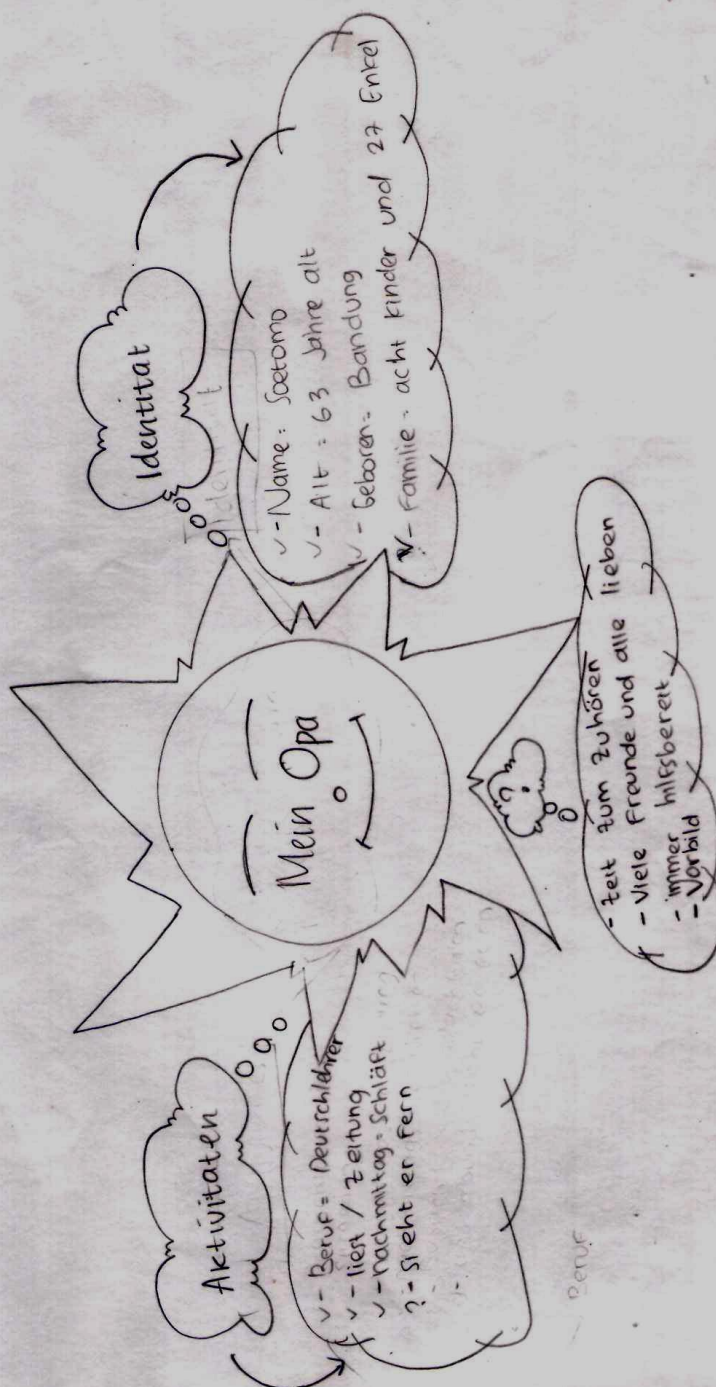 Mein Opa
Identitat
v - Name = Soetomo
v - Alt = 63 Jahre alt
v - Geboren = Bandung
v - Familie = acht kinder und 27 Enkel
Aktivitaten
v - Beruf = Deutschlehrer
v - liest / Zeitung
v - nachmittag = Schläft
? - Sieht er Fern
?
- Zeit zum zuhören
- Viele Freunde und alle lieben
- immer hilfsbereit
- Vorbild
- Beruf